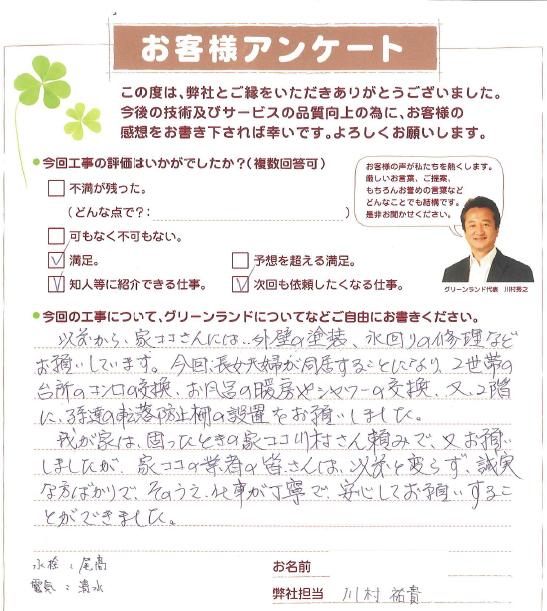 お客様アンケート
この度は、弊社とご縁をいただきありがとうございました。
今後の技術及びサービスの品質向上の為に、お客様の
感想をお書き下されば幸いです。よろしくお願いします。
今回工事の評価はいかがでしたか?(複数回答可)
不満が残った。
(どんな点で?: )
可もなく不可もない。
満足。
予想を超える満足。
知人等に紹介できる仕事。
次回も依頼したくなる仕事。
お客様の声が私たちを熱くします。
厳しいお言葉、ご提案、
もちろんお誉めの言葉など
どんなことでも結構です。
是非お聞かせください。
グリーンランド代表 川村秀之
今回の工事について、グリーンランドについてなどご自由にお書きください。
以前から、家ココさんには、外壁の塗装、水回りの修理など
お願いしています。今回、長女夫婦が同居することになり、2世帯の
台所のコンロの交換、お風呂の暖房やシャワーの交換、又、2階
に、子達の転落防止柵の設置をお願いしました。
我が家は、困ったときの家ココ川村さん頼みで、又お願い
しましたが、家ココの業者の皆さんは、以前と変らず、誠実
な方ばかりで、そのうえ、仕事が丁寧で、安心してお願いするこ
とができました。
水栓:尾高
電気:清水
お名前
弊社担当 川村 祐貴